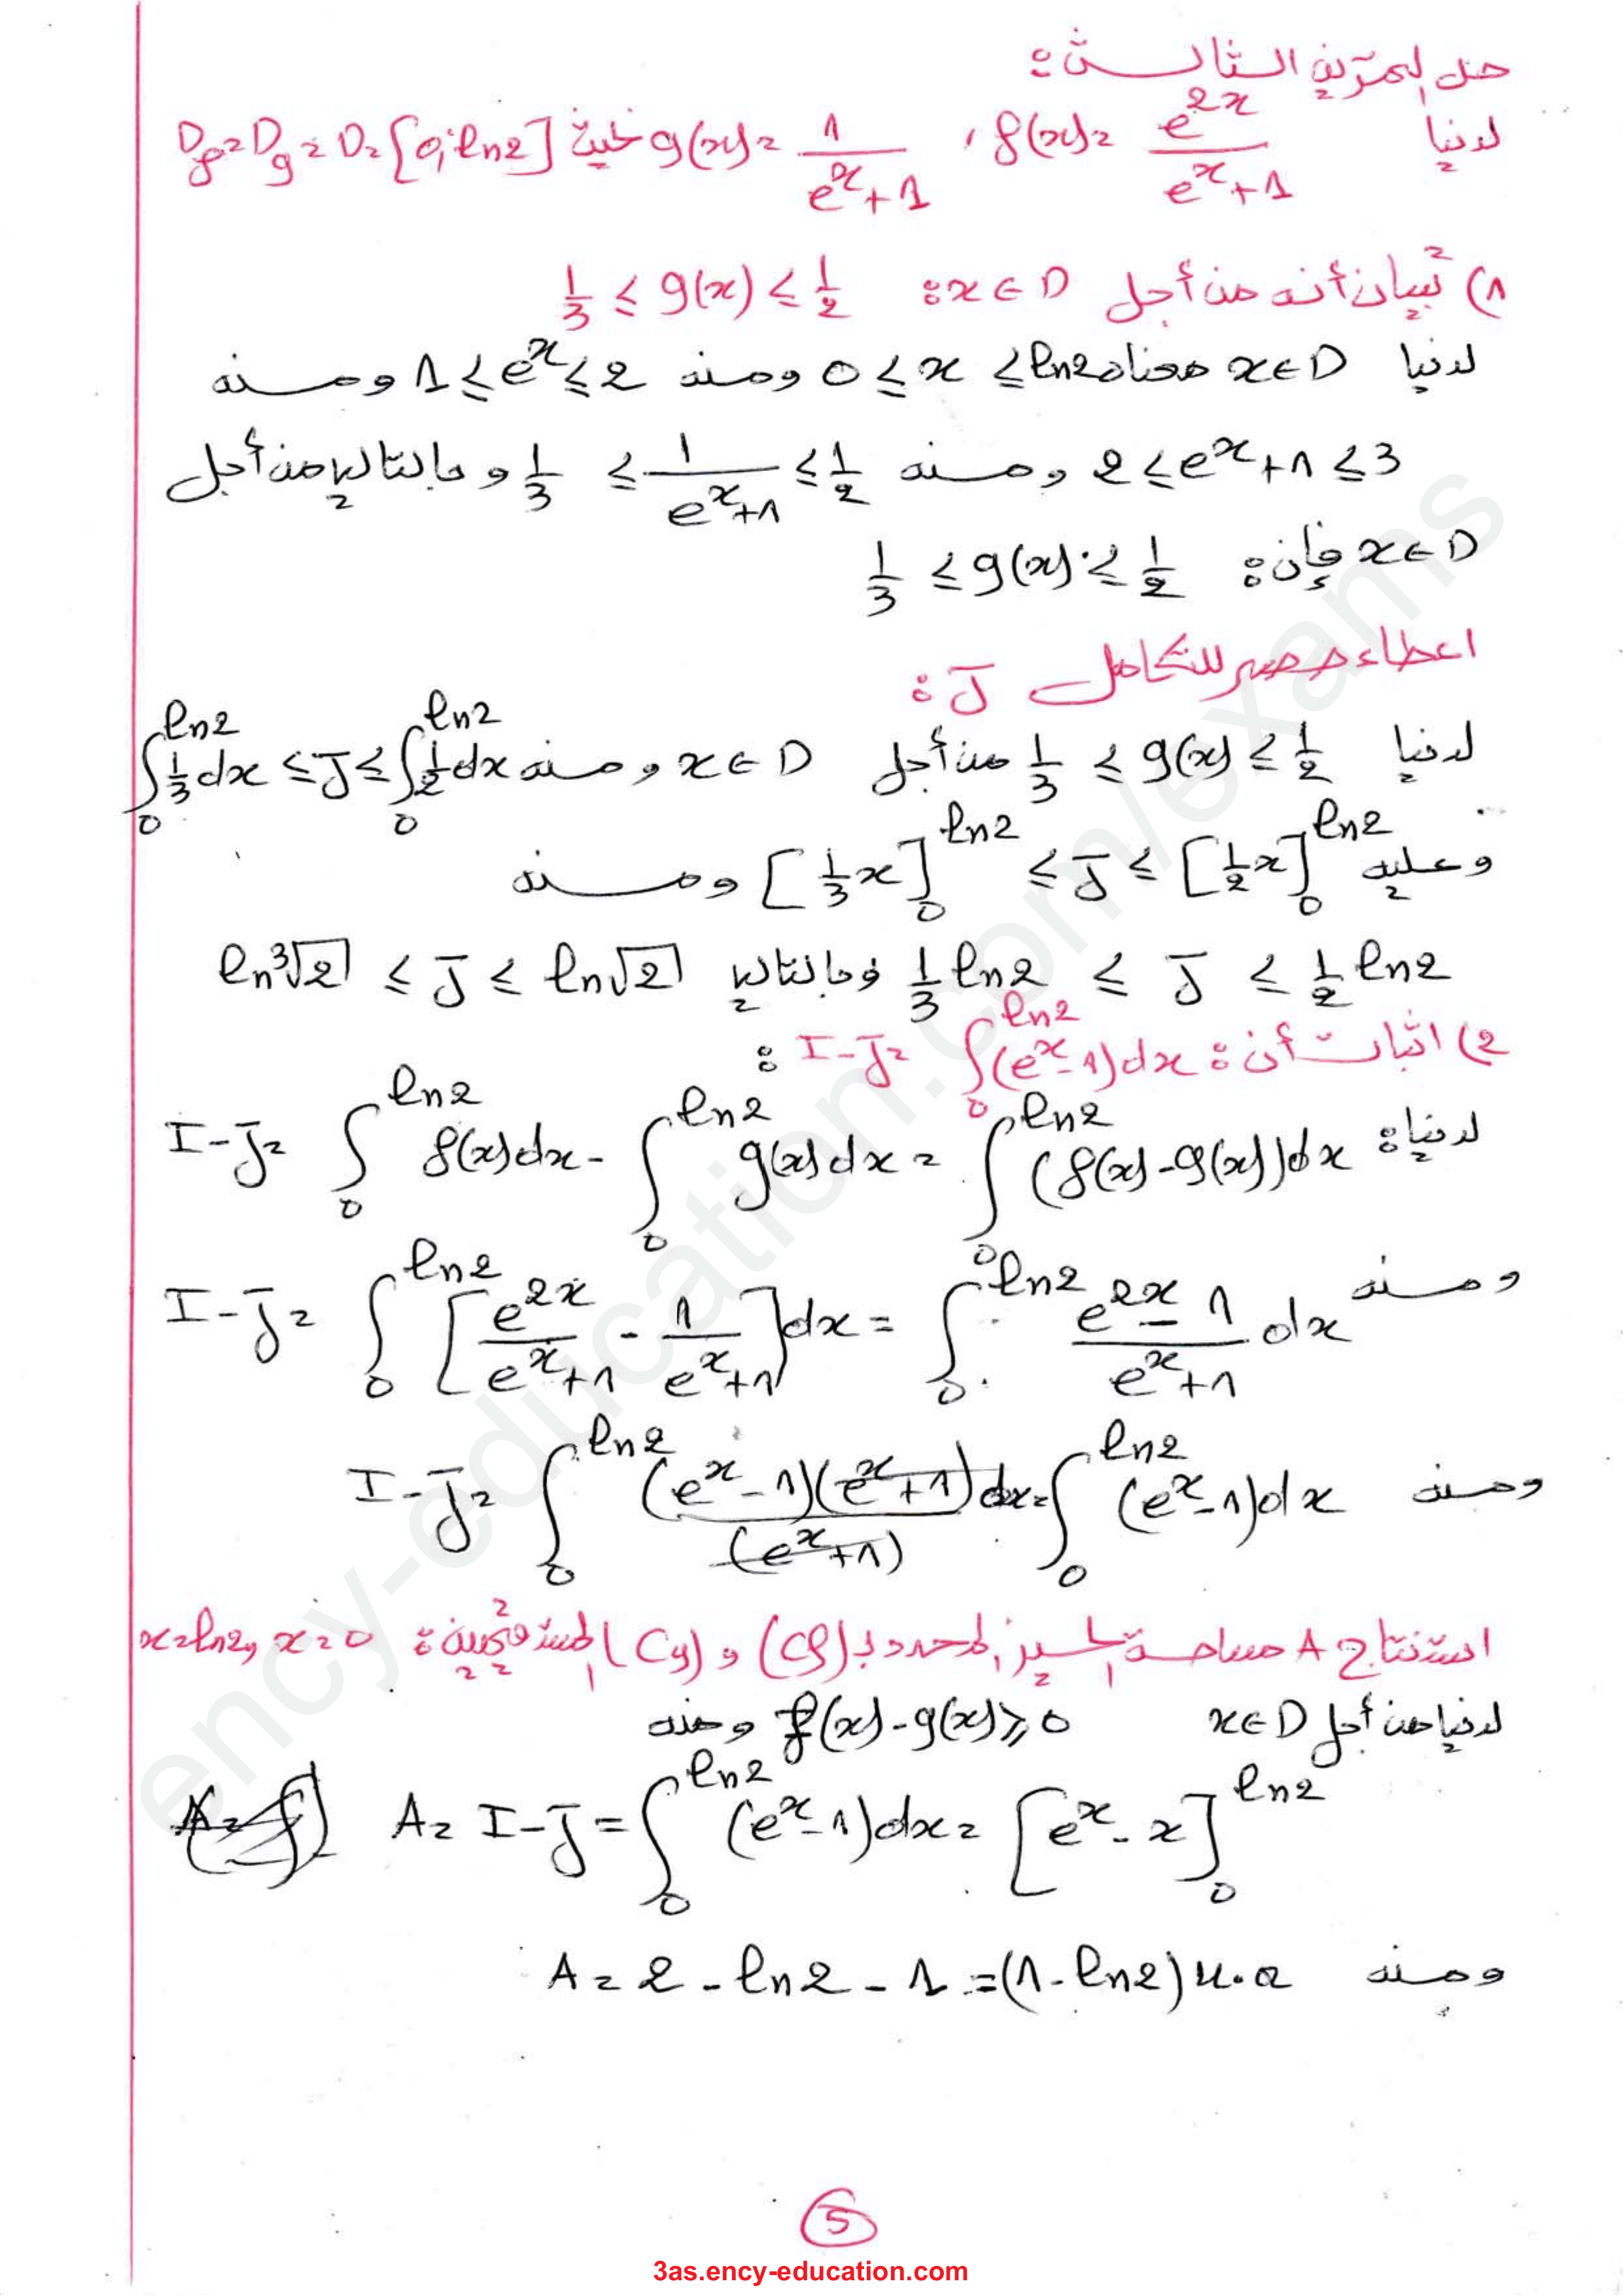 حل التمرين الثالث:
لدينا f(x)= e^{2x}/(e^x+1) ، g(x)= 1/(e^x+1) حيث D_f=D_g=D=[0;ln2]
1) تبيان أنه من أجل x∈D: 1/3 ≤ g(x) ≤ 1/2
لدينا x∈D معناه 0 ≤ x ≤ ln2 ومنه 1 ≤ e^x ≤ 2 ومنه
2 ≤ e^x+1 ≤ 3 ومنه 1/3 ≤ 1/(e^x+1) ≤ 1/2 وبالتالي من أجل
x∈D فإن: 1/3 ≤ g(x) ≤ 1/2
اعطاء حصر للتكامل J:
لدينا 1/3 ≤ g(x) ≤ 1/2 من أجل x∈D ومنه ∫_0^{ln2} 1/3 dx ≤ J ≤ ∫_0^{ln2} 1/2 dx
وعليه [1/3 x]_0^{ln2} ≤ J ≤ [1/2 x]_0^{ln2} ومنه
1/3 ln2 ≤ J ≤ 1/2 ln2 وبالتالي ln ∛2 ≤ J ≤ ln √2
2) اثبات أن: I-J= ∫_0^{ln2} (e^x-1)dx :
لدينا: I-J= ∫_0^{ln2} f(x)dx - ∫_0^{ln2} g(x)dx = ∫_0^{ln2} (f(x)-g(x))dx
ومنه I-J= ∫_0^{ln2} [e^{2x}/(e^x+1) - 1/(e^x+1)]dx = ∫_0^{ln2} (e^{2x}-1)/(e^x+1) dx
ومنه I-J= ∫_0^{ln2} (e^x-1)(e^x+1)/(e^x+1) dx= ∫_0^{ln2} (e^x-1)dx
استنتاج A مساحة الحيز المحدد بـ (Cf) و (Cg) المستقيمين: x=0 و x=ln2
لدينا من أجل x∈D f(x)-g(x) ≥ 0 ومنه
A= I-J= ∫_0^{ln2} (e^x-1)dx= [e^x-x]_0^{ln2}
ومنه A= 2-ln2-1=(1-ln2)u.a
5
3as.ency-education.com
ency-education.com/exams